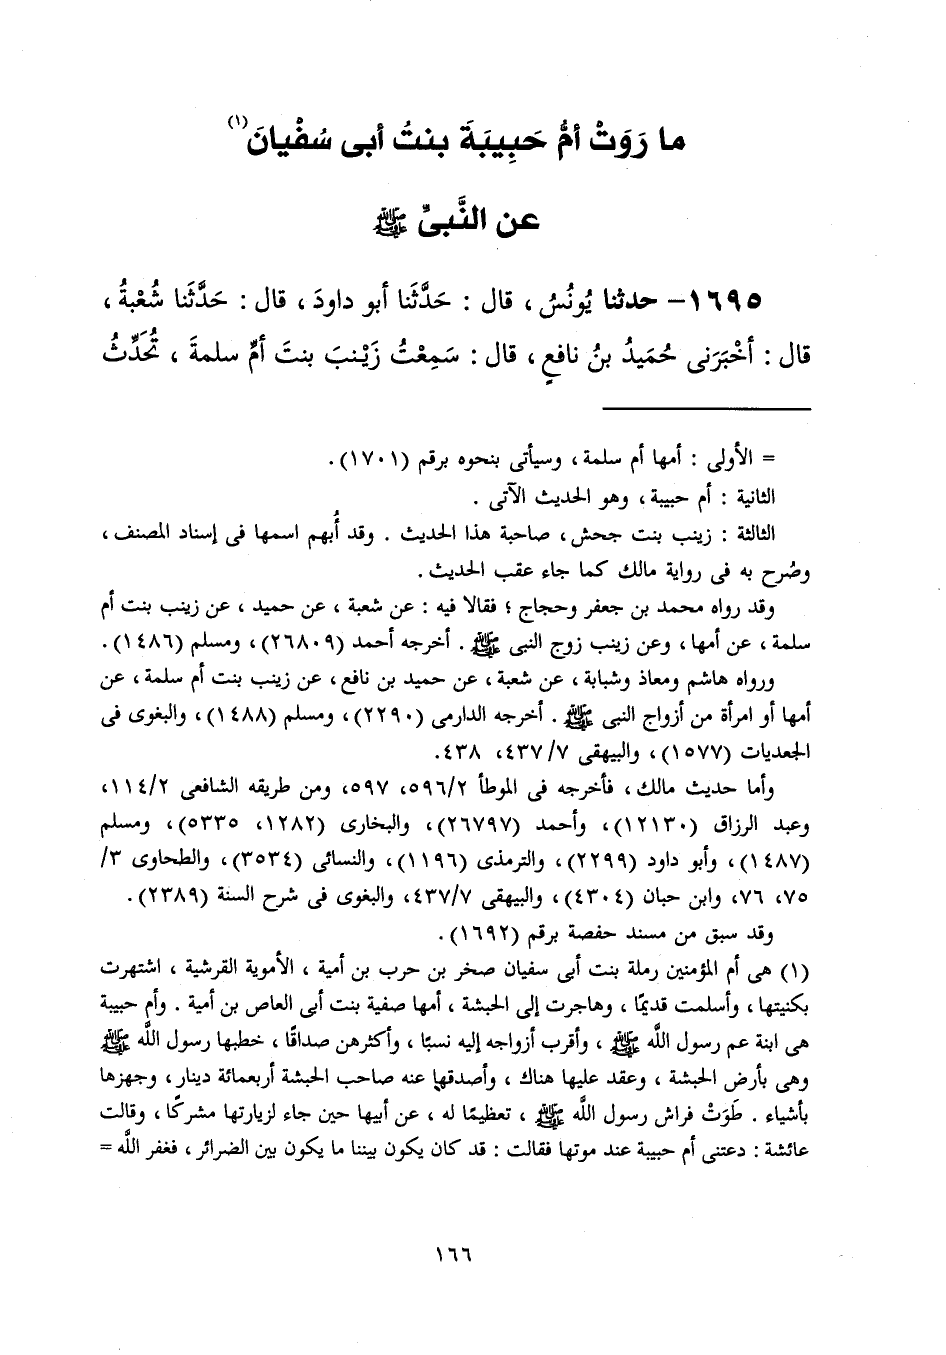 ما رَوَتْ أمُّ حَبِيبَةَ بنتُ أبى سُفْيانَ(١)
عن النَّبىِّ ﷺ
١٦٩٥- حدثنا يُونُسُ ، قال : حَدَّثَنا أبو داودَ ، قال : حَدَّثَنا شُعْبةُ ،
قال : أخْبَرَنى حُمَيدُ بنُ نافعٍ ، قال : سَمِعْتُ زَيْنبَ بنتَ أمِّ سلمةَ ، تُحَدِّثُ
= الأولى : أمها أم سلمة ، وسيأتى بنحوه برقم (١٧٠١).
الثانية : أم حبيبة ، وهو الحديث الآتى .
الثالثة : زينب بنت جحش ، صاحبة هذا الحديث . وقد أُبهم اسمها فى إسناد المصنف ،
وصُرح به فى رواية مالك كما جاء عقب الحديث .
وقد رواه محمد بن جعفر وحجاج ؛ فقالا فيه : عن شعبة ، عن حميد ، عن زينب بنت أم
سلمة ، عن أمها ، وعن زينب زوج النبى ﷺ . أخرجه أحمد (٢٦٨٠٩) ، ومسلم (١٤٨٦).
ورواه هاشم ومعاذ وشبابة ، عن شعبة ، عن حميد بن نافع ، عن زينب بنت أم سلمة ، عن
أمها أو امرأة من أزواج النبى ﷺ . أخرجه الدارمى (٢٢٩٠) ، ومسلم (١٤٨٨) ، والبغوى فى
الجعديات (١٥٧٧) ، والبيهقى ٤٣٧/٧، ٤٣٨.
وأما حديث مالك ، فأخرجه فى الموطأ ٥٩٦/٢، ٥٩٧، ومن طريقه الشافعى ١١٤/٢،
وعبد الرزاق (١٢١٣٠) ، وأحمد (٢٦٧٩٧) ، والبخارى (١٢٨٢، ٥٣٣٥) ، ومسلم
(١٤٨٧) ، وأبو داود (٢٢٩٩) ، والترمذى (١١٩٦) ، والنسائى (٣٥٣٤) ، والطحاوى ٣/
٧٥، ٧٦، وابن حبان (٤٣٠٤) ، والبيهقى ٤٣٧/٧، والبغوى فى شرح السنة (٢٣٨٩).
وقد سبق من مسند حفصة برقم (١٦٩٢).
(١) هى أم المؤمنين رملة بنت أبى سفيان صخر بن حرب بن أمية ، الأموية القرشية ، اشتهرت
بكنيتها ، وأسلمت قديمًا ، وهاجرت إلى الحبشة ، أمها صفية بنت أبى العاص بن أمية . وأم حبيبة
هى ابنة عم رسول اللَّه ﷺ ، وأقرب أزواجه إليه نسبًا ، وأكثرهن صداقًا ، خطبها رسول اللَّه ﷺ
وهى بأرض الحبشة ، وعقد عليها هناك ، وأصدقها عنه صاحب الحبشة أربعمائة دينار ، وجهزها
بأشياء . طَوَتْ فراش رسول اللَّه ﷺ ، تعظيمًا له ، عن أبيها حين جاء لزيارتها مشركًا ، وقالت
عائشة : دعتنى أم حبيبة عند موتها فقالت : قد كان يكون بيننا ما يكون بين الضرائر ، فغفر اللَّه =
١٦٦